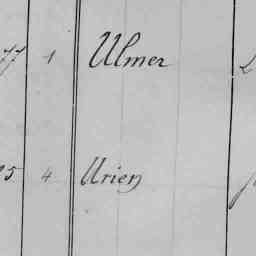 77 1 Ulmer
5 4 Urien